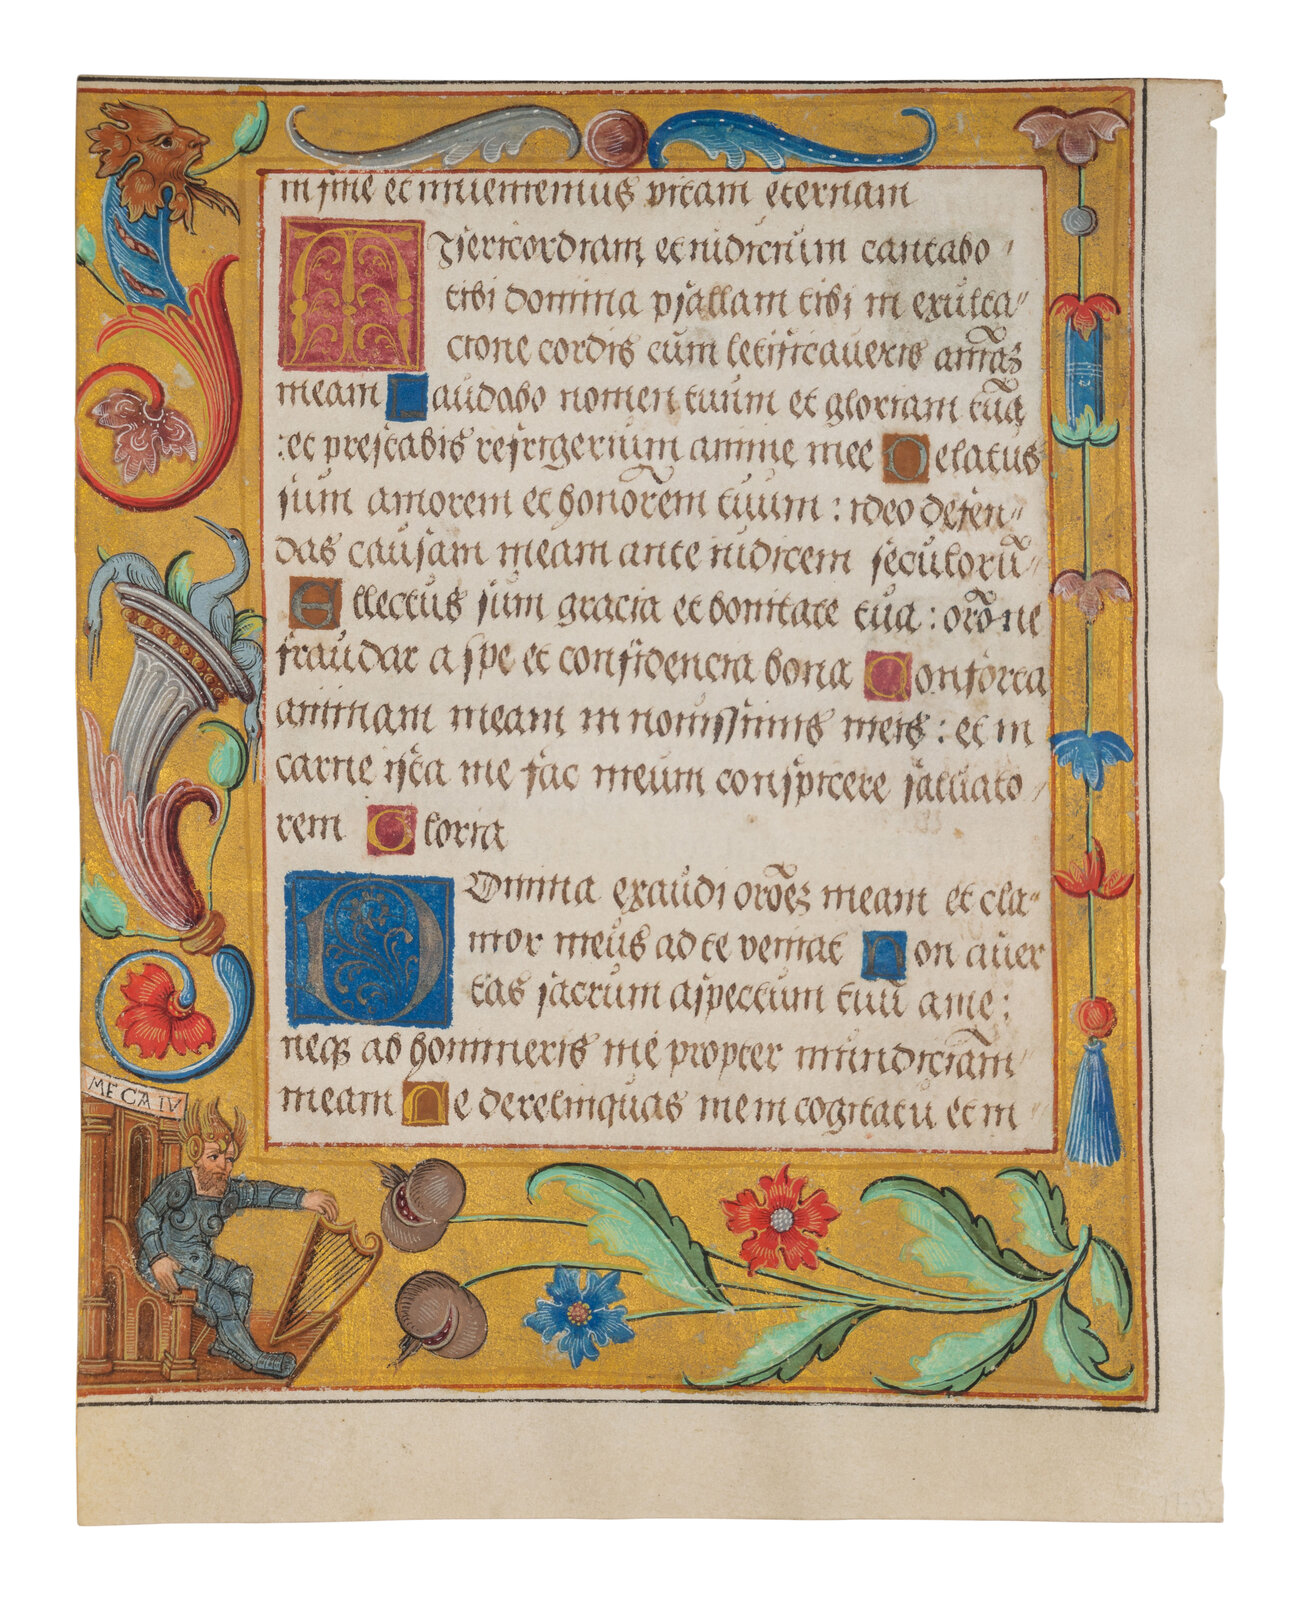 in fine et inueniemus vitam eternam
Misericordiam et iudicium cantabo
tibi domina psallam tibi in exulta
cione cordis cum letificaueris aīaȝ
meam Laudabo nomen tuum et gloriam tuā
: et prestabis refrigerium anime mee Zelatus
sum amorem et honorem tuum : ideo defen
das causam meam ante iudicem seculorū
Ellectus sum gracia et bonitate tua : orō ne
fraudar a spe et confidencia bona Conforta
animam meam in nouissimis meis : et in
carne ista me fac meum conspicere saluato
rem Gloria
Domina exaudi orōeȝ meam et cla
mor meus ad te veniat Non auer
tas sacrum aspectum tuū a me :
neqꝫ ab homineris me propter mundiciam
meam Ne derelinquas me in cogitatu et in
MECA IV